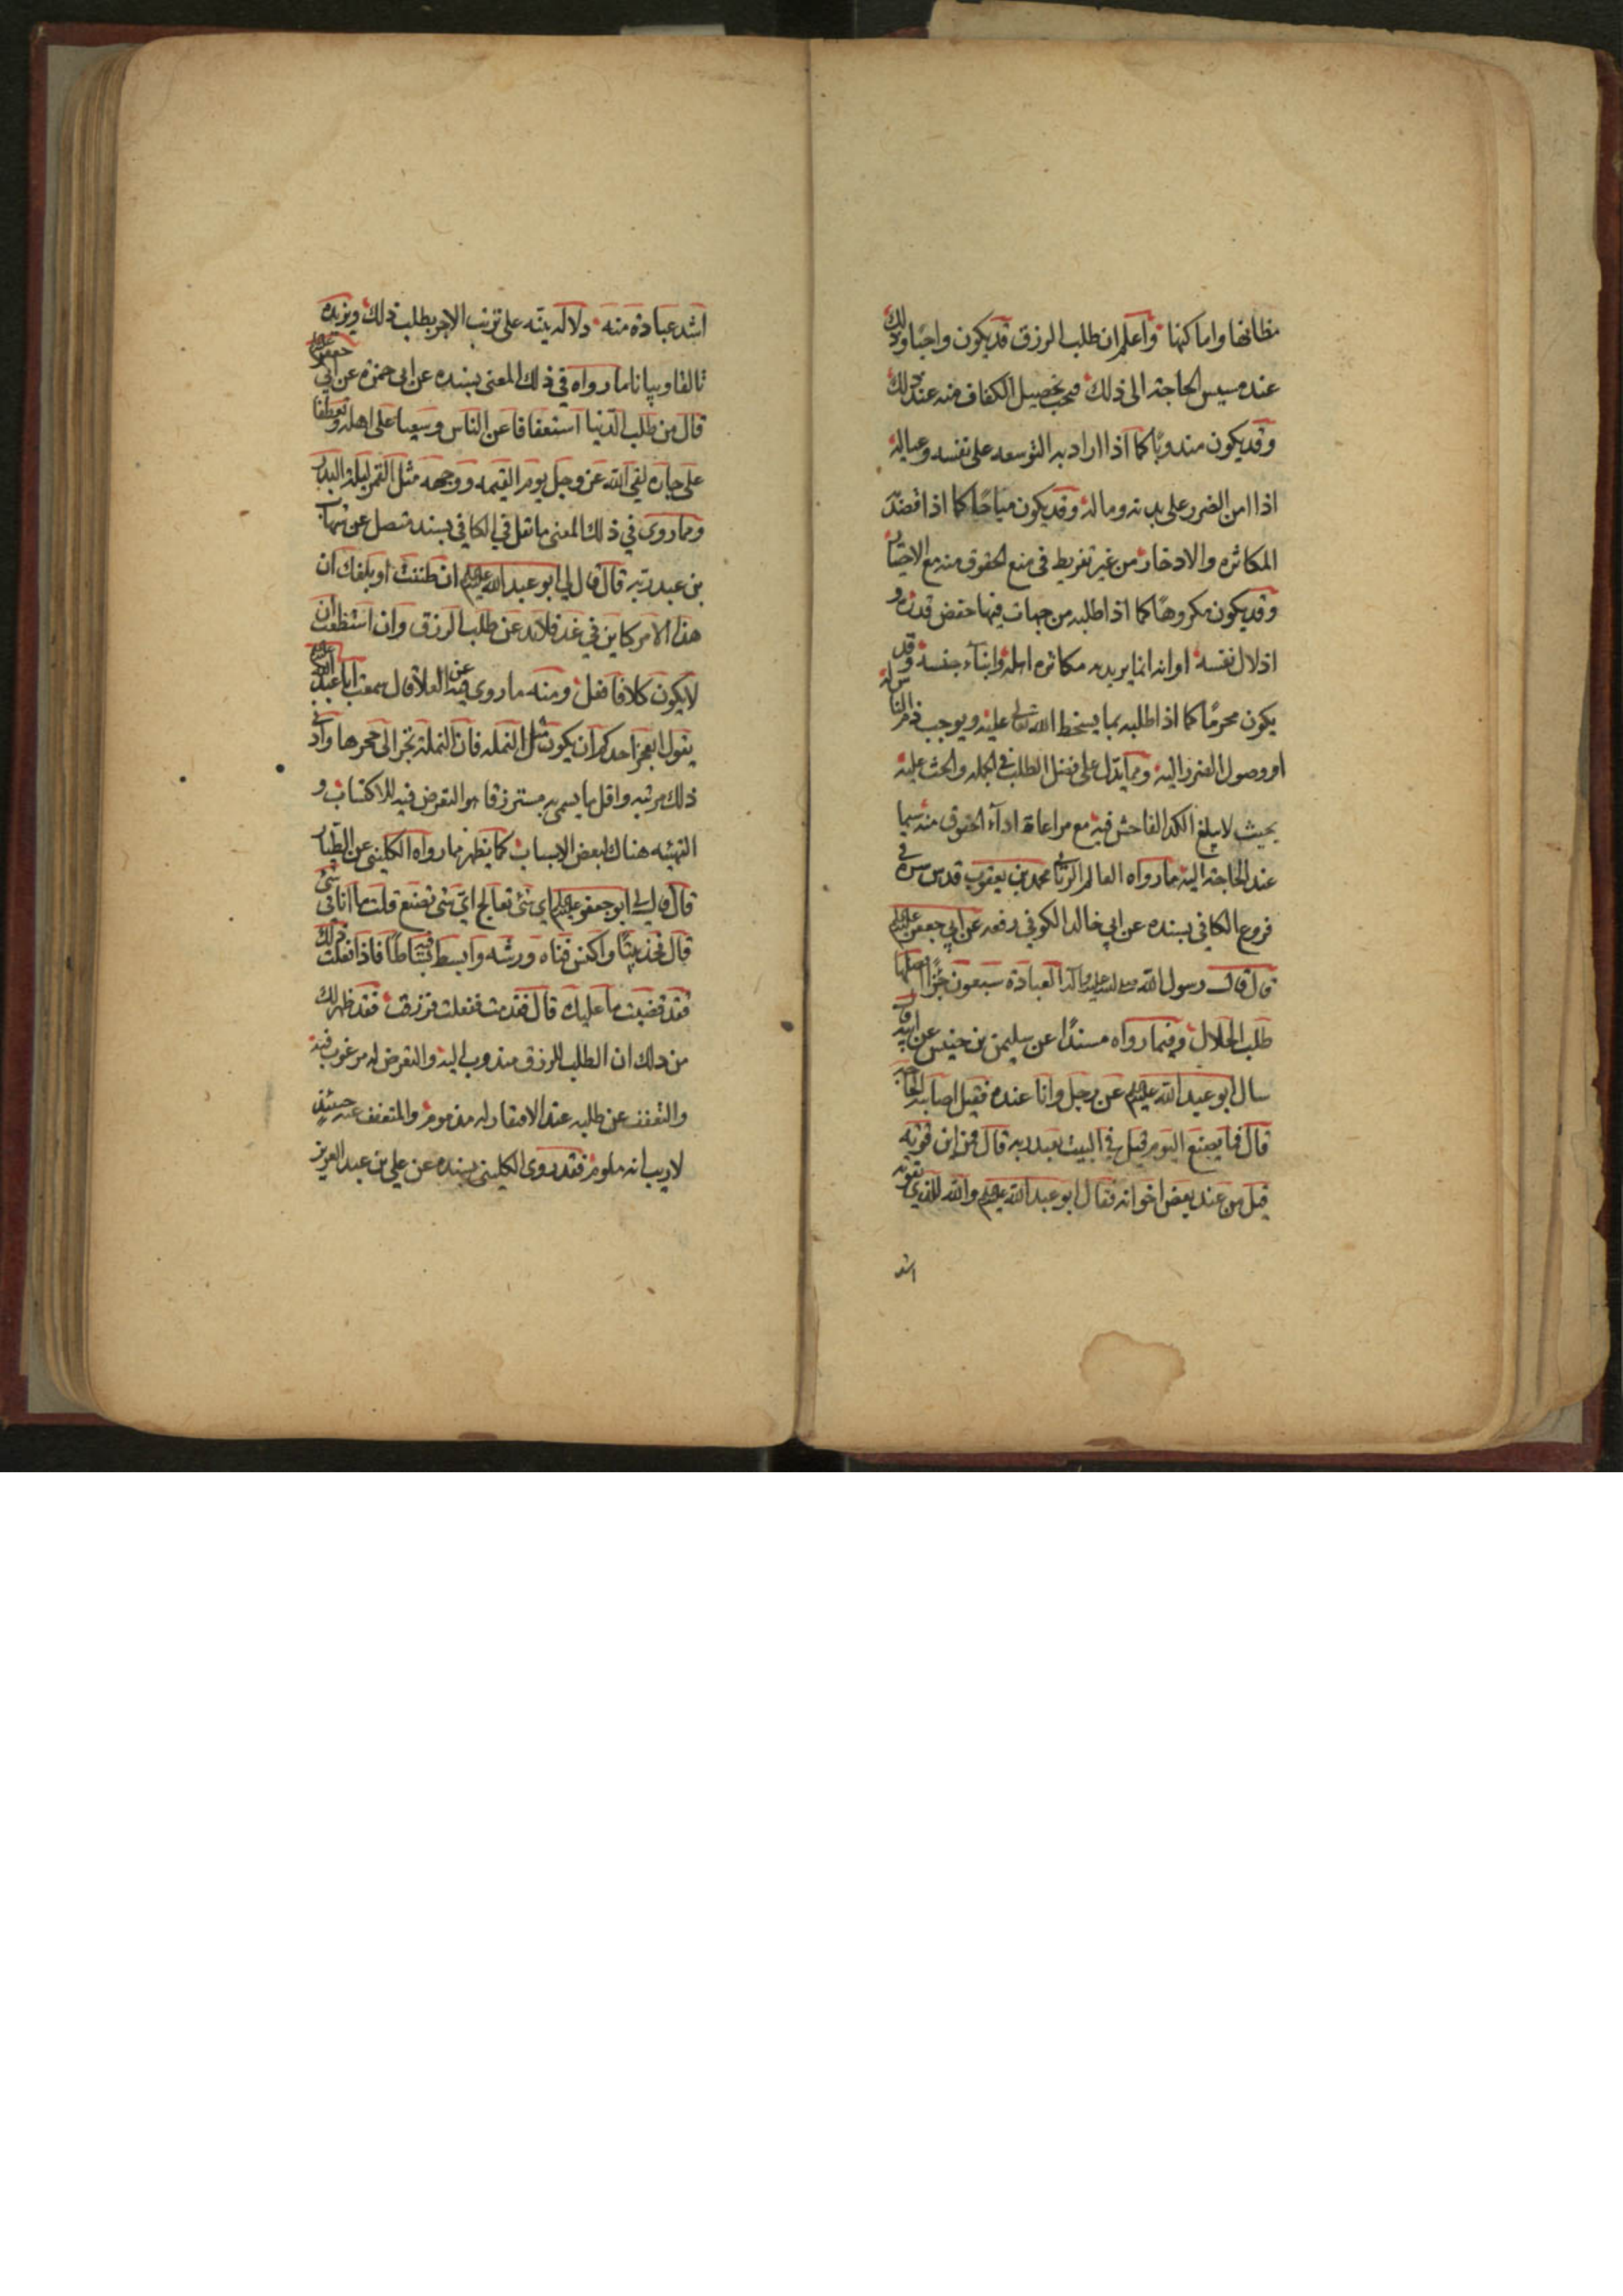 مظانها واماكنها واعلم ان طلب الرزق قد يكون واجبا وذلك
عند مسيس الحاجة الى ذلك فيجب تحصيل الكفاف منه عند ذلك
وقد يكون مندوبًا كما اذا اراد به التوسعه على نفسه وعياله
اذا امن الضرر على بدنه وماله وقد يكون مباحًا كما اذا قصد
المكاثره والادخار من غير تفريط فى منع الحقوق منه مع الاختيار
وقد يكون مكروهًا كما اذا طلبه من جهات فيها خفض قدره و
اذلال نفسه او انه انما يريد به مكاثره اهله وابناء جنسه وقد
يكون محرمًا كما اذا طلبه بما يسخط الله تعالى عليه ويوجب ذم الناس له
او وصول الضرر اليه ومما يدل على فضل الطلب في الجمله والحث عليه
بحيث لا يبلغ الكد الفاحش فيه مع مراعاة اداء الحقوق منه سيما
عند الحاجة اليه ما رواه العالم الربانى محمد بن يعقوب قدس سره في
فروع الكافي بسنده عن ابي خالد الكوفي رفعه عن ابي جعفر عليه السلام
قال قال رسول الله صلى الله عليه واله العبادة سبعون جزًا افضلها
طلب الحلال وفيما رواه مسندًا عن سليمن بن خنيس عن ابيه قال
سال ابو عبد الله عليه السلام عن رجل وانا عنده فقيل اصابته الحاجة
قال فما يصنع اليوم قيل في البيت يعبد ربه قال فمن اين قوته
قيل من عند بعض اخوانه فقال ابو عبد الله عليه السلام والله للذي يقوته
اشد
اشد عبادة منه دلالة بينه على ترتب الاجر بطلب ذلك ويزيده
تالفا وبيانا ما رواه في ذلك المعنى بسنده عن ابى حمزه عن ابي جعفر عليه السلام
قال من طلب الدنيا استعفافا عن الناس وسعيا على اهله وتعطفا
على جاره لقي الله عز وجل يوم القيمه ووجهه مثل القمر ليلة البدر
ومما روى في ذلك المعنى ما نقل في الكافي بسند متصل عن شهاب
بن عبد ربه قال قال لي ابو عبد الله عليه السلام ان ظننت او بلغك ان
هذا الامر كاين في غد فلا تدعن طلب الرزق وان استطعت ان
لا يكون كلا فافعل ومنه ما روي فيه عن العلا قال سمعت ابا عبد الله عليه السلام
يقول ايعجز احدكم ان يكون مثل النمله فان النملة تجر الى جحرها وادنى
ذلك مرتبه واقل ما يسمى به مسترزقا هو التعرض فيه للاكتساب و
التهيئه هناك لبعض الاسباب كما يظهر مما رواه الكلينى عن الطيار
قال قال لي ابو جعفر عليه السلام اي شئ تعالج اي شئ تصنع قلت ما انا في شئ
قال فخذ بيتًا واكنس فناه ورشه وابسط فيه بساطًا فاذا فعلت ذلك
فقد قضيت ما عليك قال فقدمت ففعلت فرزقت فقد ظهر لك
من ذلك ان الطلب للرزق مندوب اليه والتعرض له مرغوب فيه
والتعفف عن طلبه عند الافتقار له مذموم والمتعفف عنه حينئذ
لا ريب انه ملوم فقد روى الكلينى بسنده عن علي بن عبد العزيز